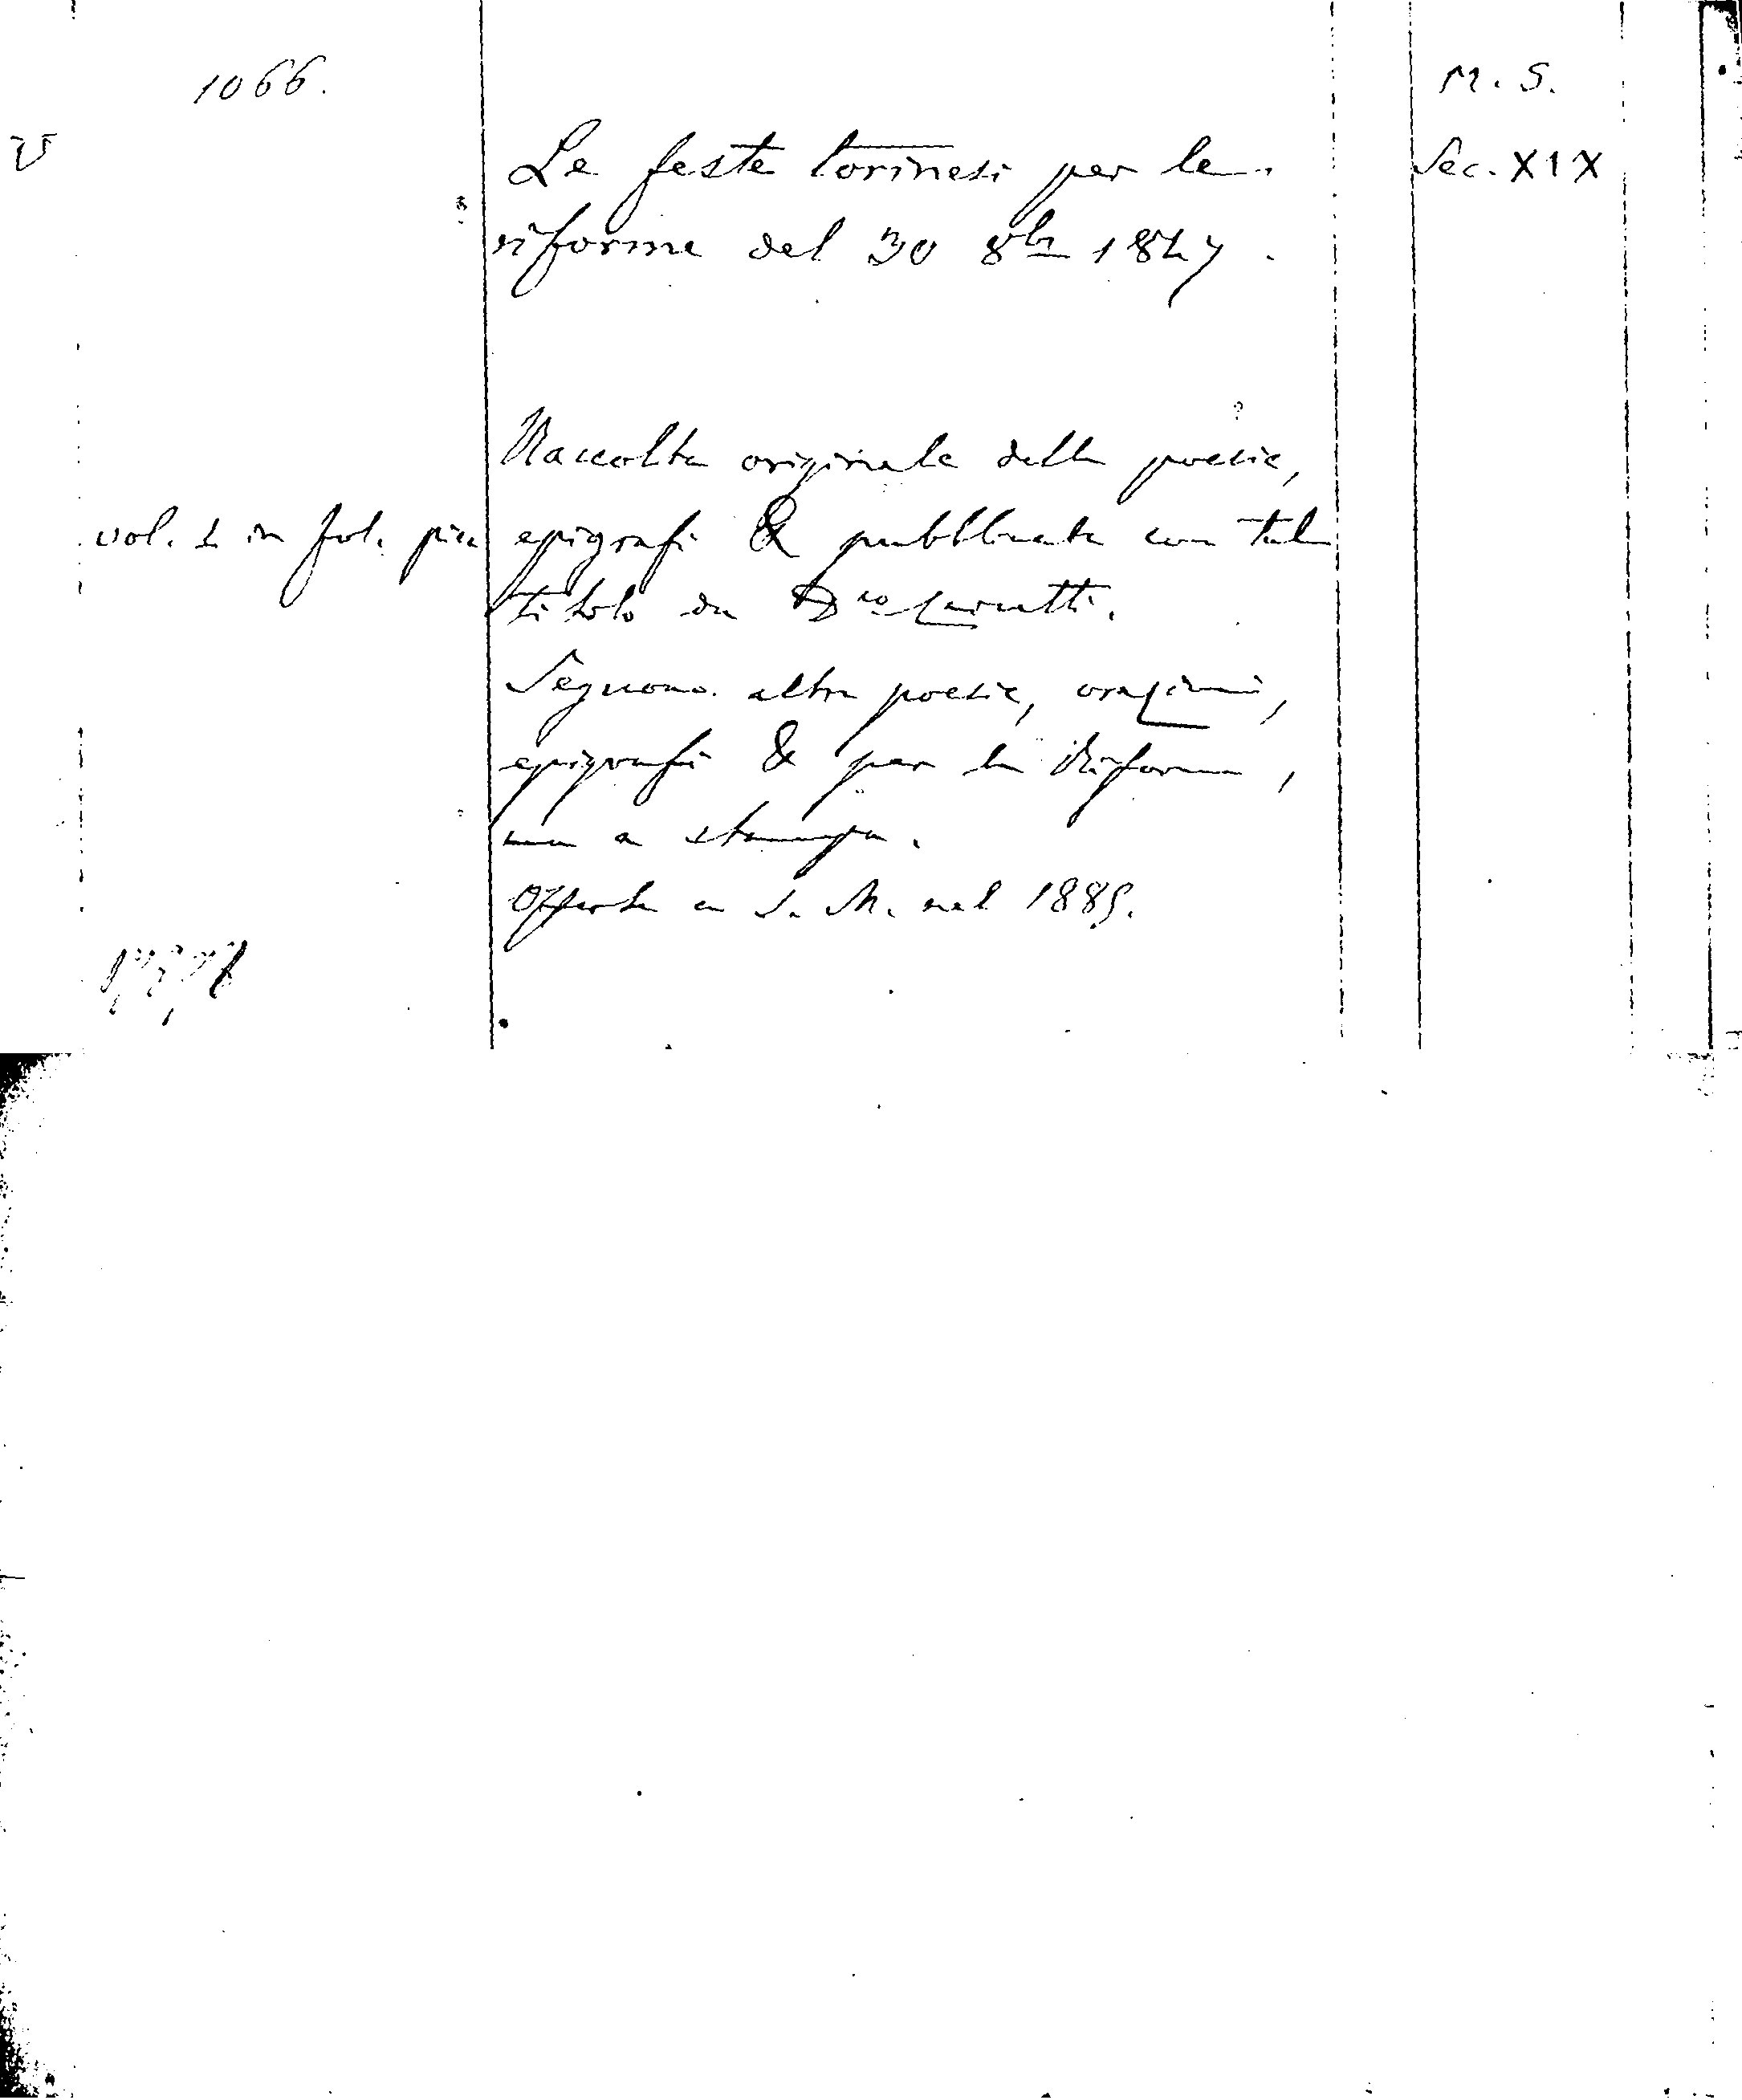 1066.
M. S.
V
Sec. XIX
Le feste torinesi per le
riforme del 30 8bre 1847.
Raccolta originale delle poesie,
vol. 1 in fol. picc
epigrafi & pubblicate con tal
titolo da Dco Carutti.
Seguono altre poesie, orazioni,
epigrafi & per le Riforme,
ma a stampa.
Offerta a S. M. nel 1889.